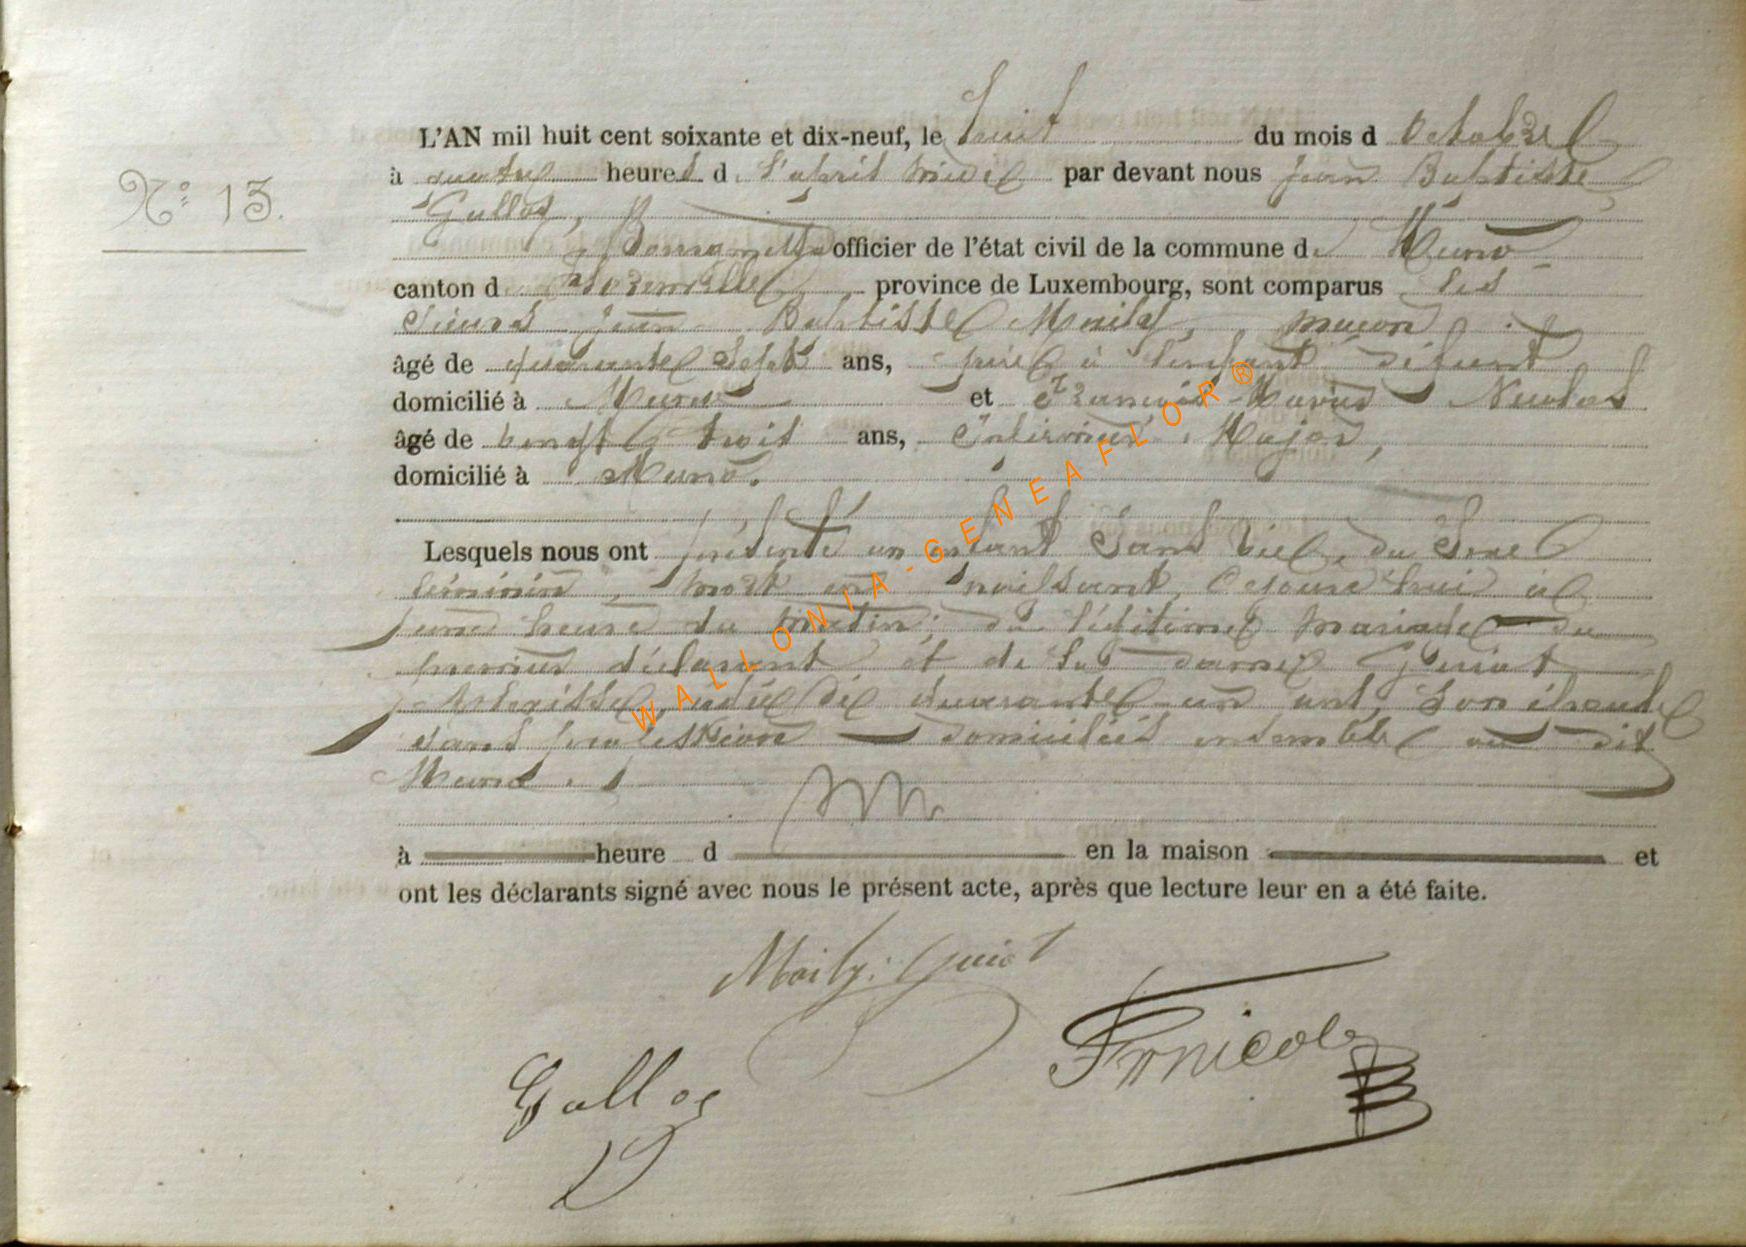 N° 13.
L'AN mil huit cent soixante et dix-neuf, le huit du mois d octobre
à quatre heures d. l'après midi par devant nous Jean Baptiste
Golloy, Bourgmestre officier de l'état civil de la commune de Muno
canton d province de Luxembourg, sont comparus les
sieurs Jean Baptiste Maily, maçon
âgé de quarante sept ans, père à l'enfant défunt
domicilié à Muno et François Marie Nicolas
âgé de vingt trois ans, Major,
domicilié à Muno.
Lesquels nous ont présenté un enfant sans vie, du sexe
féminin, mort en naissant, cejourd'hui à
une heure du matin, du légitime mariage du
premier déclarant et de la dame Guiot
âgée de quarante un ans, son épouse
sans profession domiciliés ensemble au dit
Muno.
à heure d en la maison et
ont les déclarants signé avec nous le présent acte, après que lecture leur en a été faite.
Maily. Guiot
Golloy
WALLONIA-GENEAFLOR®